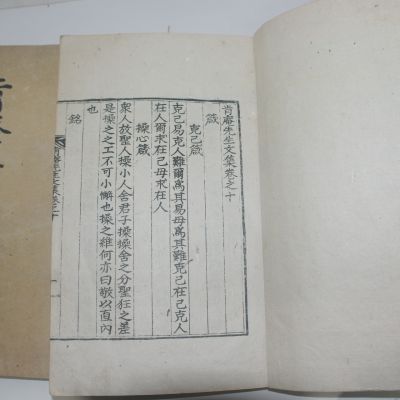 肯庵先生文集卷之十
箴
克己箴
克己易克人難爾爲其易毋爲其難克己在己克人
在人爾求在己毋求在人
操心箴
衆人放聖人操小人舍君子操操舍之分聖狂之差
是操之之工不可小懈也操之維何亦曰敬以直內
也
銘